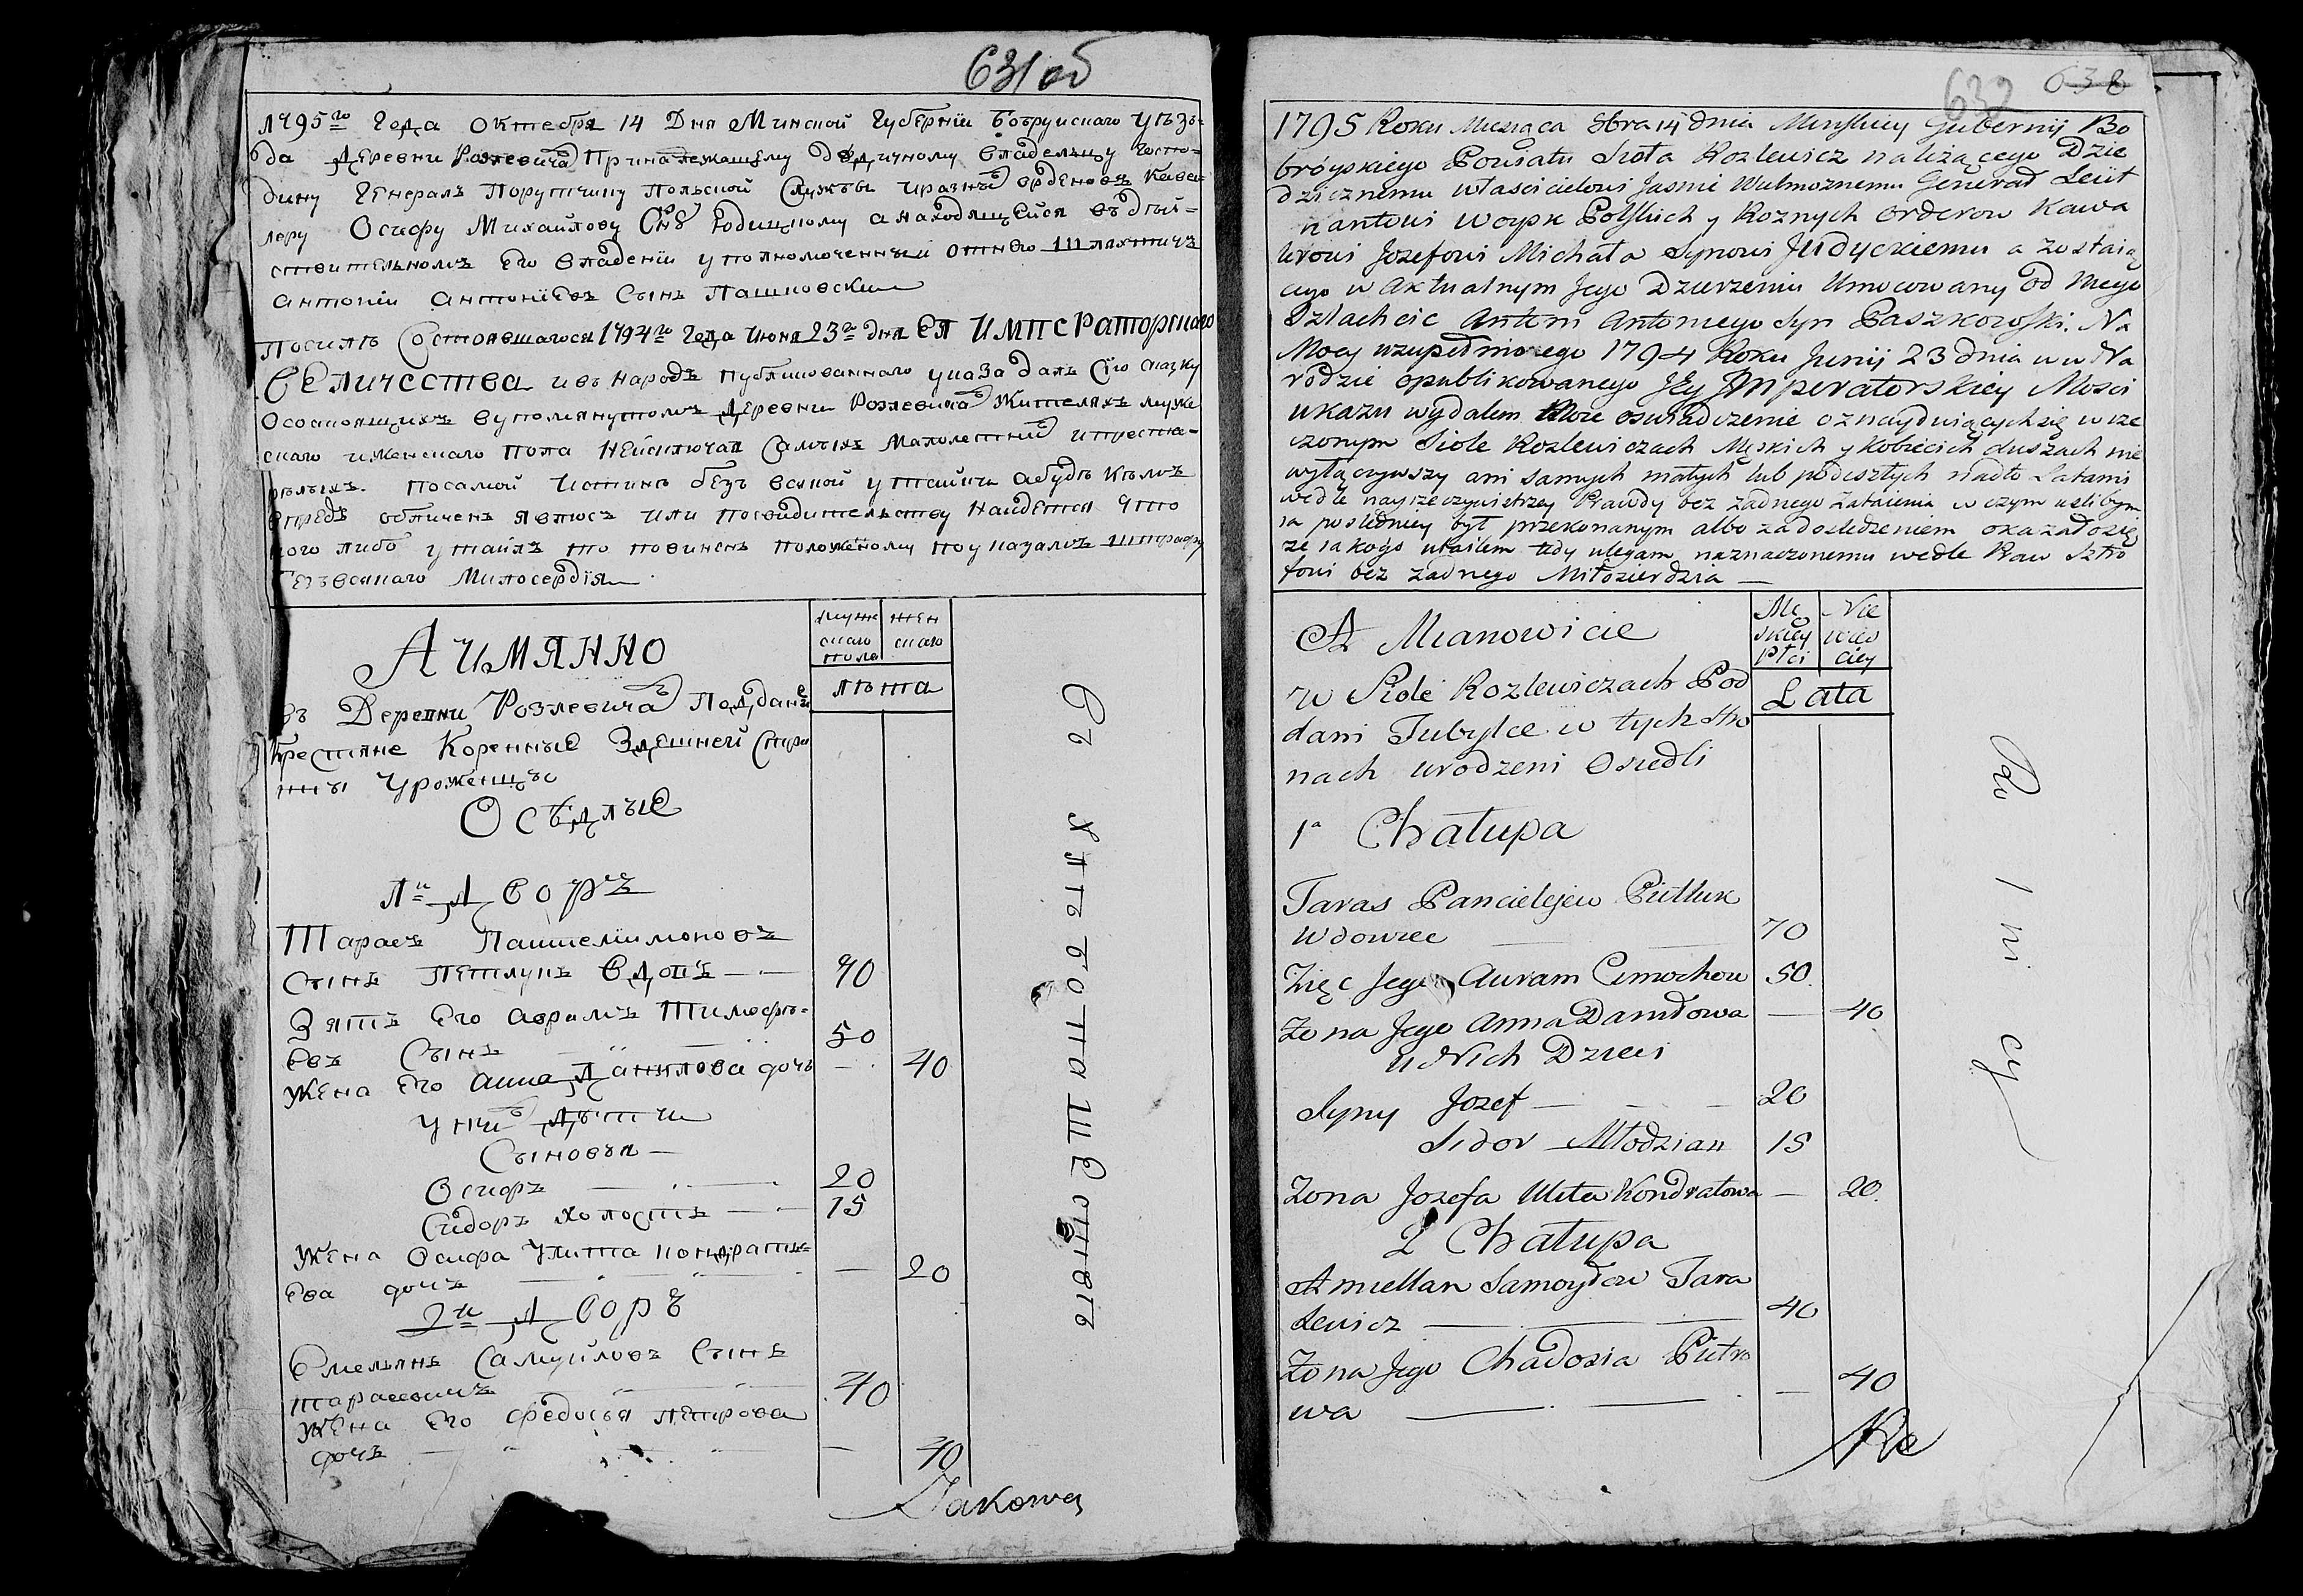 631 об
1795го Года Октебря 14 Дня Минской Губернїи Бобруйскаго Уѣзъ-
да Деревни Розлевичъ Приналежащему дѣдичному владельцу Госпо-
дину Генералъ Порутчику Польской Службы и разнъ орденовъ Кава-
леру Осифу Михайлову Снъ Юдицкому а находящейся въ дѣй-
ствительномъ Его владенїи уполномоченный отнего шляхтичъ
Антонїй Антонїевъ Сынъ Пашковский
Посилѣ Состоявшагося 1794го Года Июня 23го дня ЕЯ ИМПЕРАТОРСКАГО
ВЕЛИЧЕСТВА и въ народъ публикованнаго указа далъ Сїю сказку
Осостоящихъ вупомянутомъ Деревни Розлевичахъ Жителяхъ муже
скаго иженскаго пола Неисключая Самыхъ Малолетний ипреста-
рѣлыхъ. посамой Истинѣ безъ всякой утайки абудѣ кѣмъ
впредъ обличенъ явлюсъ или посвидительству найдется Что
кого либо утайлъ то повиненъ положеному поуказамъ штрафу
безъвсякаго Милосердїя
АИМЯННО
муже скаго пола
жен скаго
лѣта
въ Деревни Розлевичахъ Подданые
Крестяне Коренные Здешней Стра
нны Уроженцы
Осѣдлые
1й Дворъ
Тарасъ Пантелимоновъ
Сынъ Петлукъ Вдовъ — 70
Зятъ Его Аврамъ Тимофѣ-
евъ Сынъ 50
Жена Его Анна Данилова дочь — 40
У нихъ Дѣти
Сыновья —
Осифъ — 20
Сидоръ холостъ — 15
Жена Осифа Улита Кондратье-
ва дочъ — 20
2й Дворъ
Емельянъ Самуйловъ Сынъ
тарасевичъ 40
Жена Его Федосья Петрова
дочъ — 40
Jakowa
632 638
1795 Roku Miesiąca 8bra 14 dnia Mińskiey Gubernij Bo
bróyskiego Powiatu Sioła Kozlewicz należącego Dzie
dzicznemu właścicielowi Jasnie Wielmoznemu Generał Leüt
nantowi Woysk Polskich y Roznych Orderow Kawa
lerowi Jozefowi Michała Synowi Judyckiemu a zostaią
cego w Aktualnym Jego Dzierzeniu Umocowany od niego
Szlachcic Antoni Antoniego Syn Paszkowski. Na
Mocy wzupełnionego 1794 Roku Junij 23 dnia w w Na
rodzie opublikowanego Jey Imperatorskiey Mosci
ukazu wydalem Moie oswiadczenie o znayduiących się w rze
czonym Siole Kozlewiczach Męskich y Kobiecich duszach nie
wyłączywszy ani samych małych lub podeszłych nadto Latami
wedle nayrzeczywistrzey Prawdy bez żadnego Zataienia w czym ieslibym
ia posledniey był przekonanym albo za dosledzeniem okazało się
ze ia kogo utailem tedy ulegam naznaczonemu wedle Praw Sztro
fowi bez żadnego Miłosierdzia —
A Mianowicie
Mę skiey Płci
Nie wieś ciey
Lata
w Siole Kozlewiczach Pod
dani Tubylce w tych Stro
nach urodzeni Osiedli
1a Chałupa
Taras Pancielejew Pietluk
Wdowiec — 70
Zięc Jego Auram Cimochow 50.
Zona Jego Anna Daniłowa — 40
u Nich Dzieci
Syny Jozef — 20
Sidor Młodzian 15
Zona Jozefa Ulita Kondratowa — 20.
2 Chałupa
Amiellan Samoyłow Tara
sewicz — 40
Zona Jego Chadosia Pietro
wa — 40